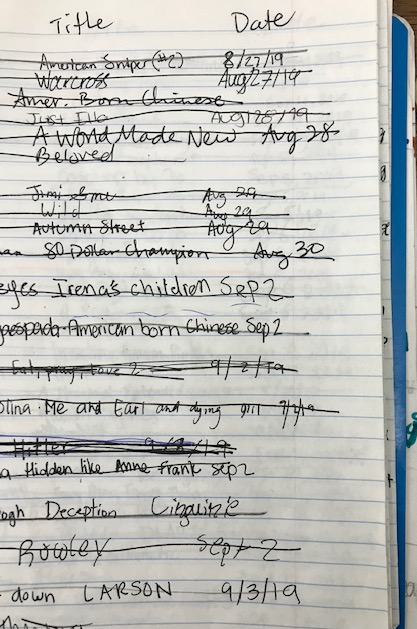 Title Date
American Sniper (#2) 8/27/19
Warcross Aug 27/19
Amer. Born Chinese
Just Ella Aug 28/19
A World Made New Aug 28
Beloved
Jimi & me Aug 29
Wild Aug 29
Autumn Street Aug 29
80 Dollar Champion Aug 30
Irena's children Sep 2
American born Chinese Sep 2
Eat, pray, love 2 9/2/19
olina. Me and Earl and dying girl 9/2/19
Hitler 9/3/19
a Hidden like Anne frank Sep 2
ough Deception
Rowley Sept 2
down LARSON 9/3/19